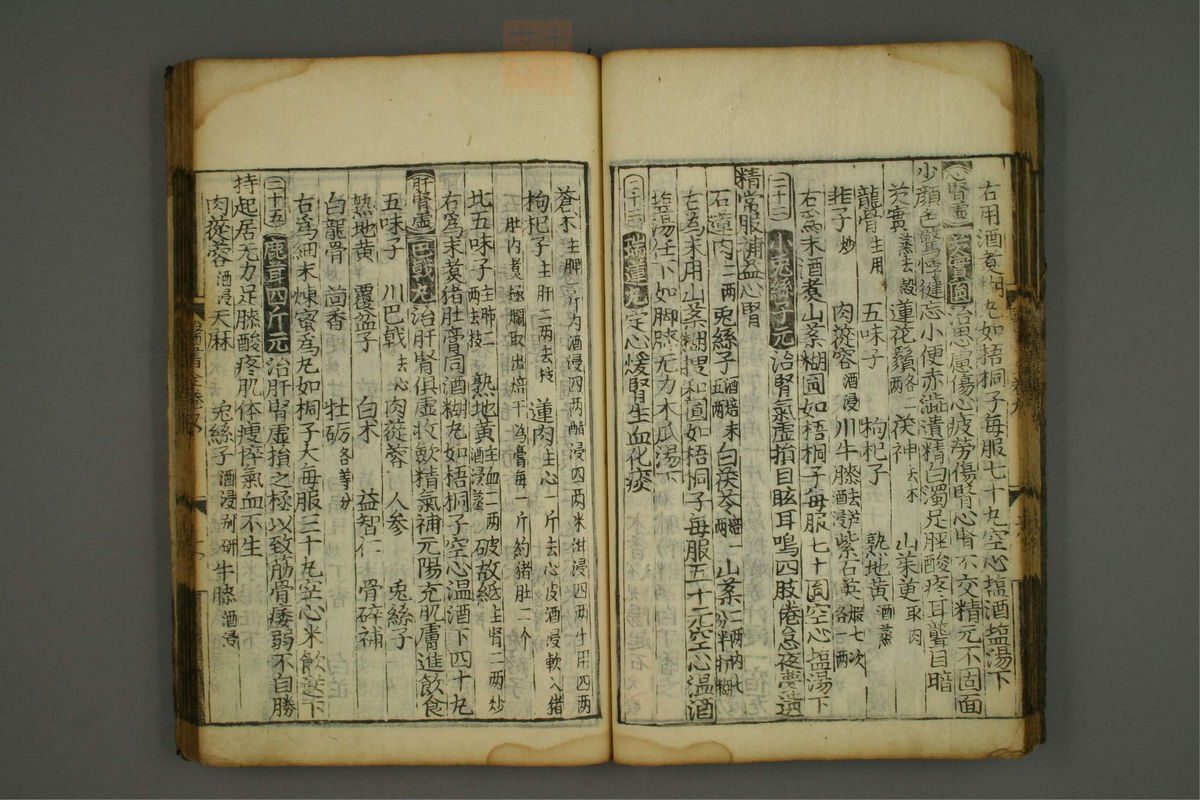 右用酒煮糊丸如梧桐子每服七十丸空心塩酒塩湯下
心腎虛 治思慮傷心疲勞傷腎心腎不交精元不固面
少顔色驚悸健忘小便赤澁遺精白濁足脛酸疼耳聾目暗
芡實蒸去殼 蓮花鬚各二兩 茯神去木 山茱萸取肉
龍骨生用 五味子 枸杞子 熟地黄酒蒸
韭子炒 肉蓯蓉酒浸 川牛膝去芦酒浸 紫石英煅七次各一兩
右為末酒煮山茱糊圓如梧桐子每服七十圓空心塩湯下
二十二 小兎絲子元 治腎氣虛損目眩耳鳴四肢倦怠夜夢遺
精常服補益心腎
石蓮肉二兩 兎絲子酒焙末五兩 白茯苓 山茱二兩內七分半打糊
右為末用山茱糊搜和圓如梧桐子每服五十元空心温酒
塩湯任下如脚膝无力木瓜湯下
二十三 瑞蓮丸 定心煖腎生血化痰
蒼朮主脾一斤內酒浸四兩醋浸四兩米泔浸四兩生用四兩
枸杞子主肝二兩去枝 蓮肉主心一斤去心皮酒浸軟入猪
肚內煮極爛取出焙干為膏每一斤約猪肚二个
北五味子主肺二兩去枝 熟地黄主血二兩酒浸蒸 破故紙主腎二兩炒
右為末煮猪肚膏同酒糊丸如梧桐子空心温酒下四十丸
肝腎虛 巴戟丸 治肝腎俱虛收斂精氣補元陽充肌膚進飲食
五味子 川巴戟去心 肉蓯蓉 人參 兎絲子
熟地黄 覆盆子 白朮 益智仁 骨碎補
白龍骨 茴香 牡砺各等分
右為細末煉蜜為丸如桐子大每服三十丸空心米飲送下
二十五 鹿茸四斤元 治肝腎虛損之極以致筋骨痿弱不自勝
持起居无力足膝酸疼肌体瘦悴氣血不生
肉蓯蓉酒浸 天麻 兎絲子酒浸別研 牛膝酒浸